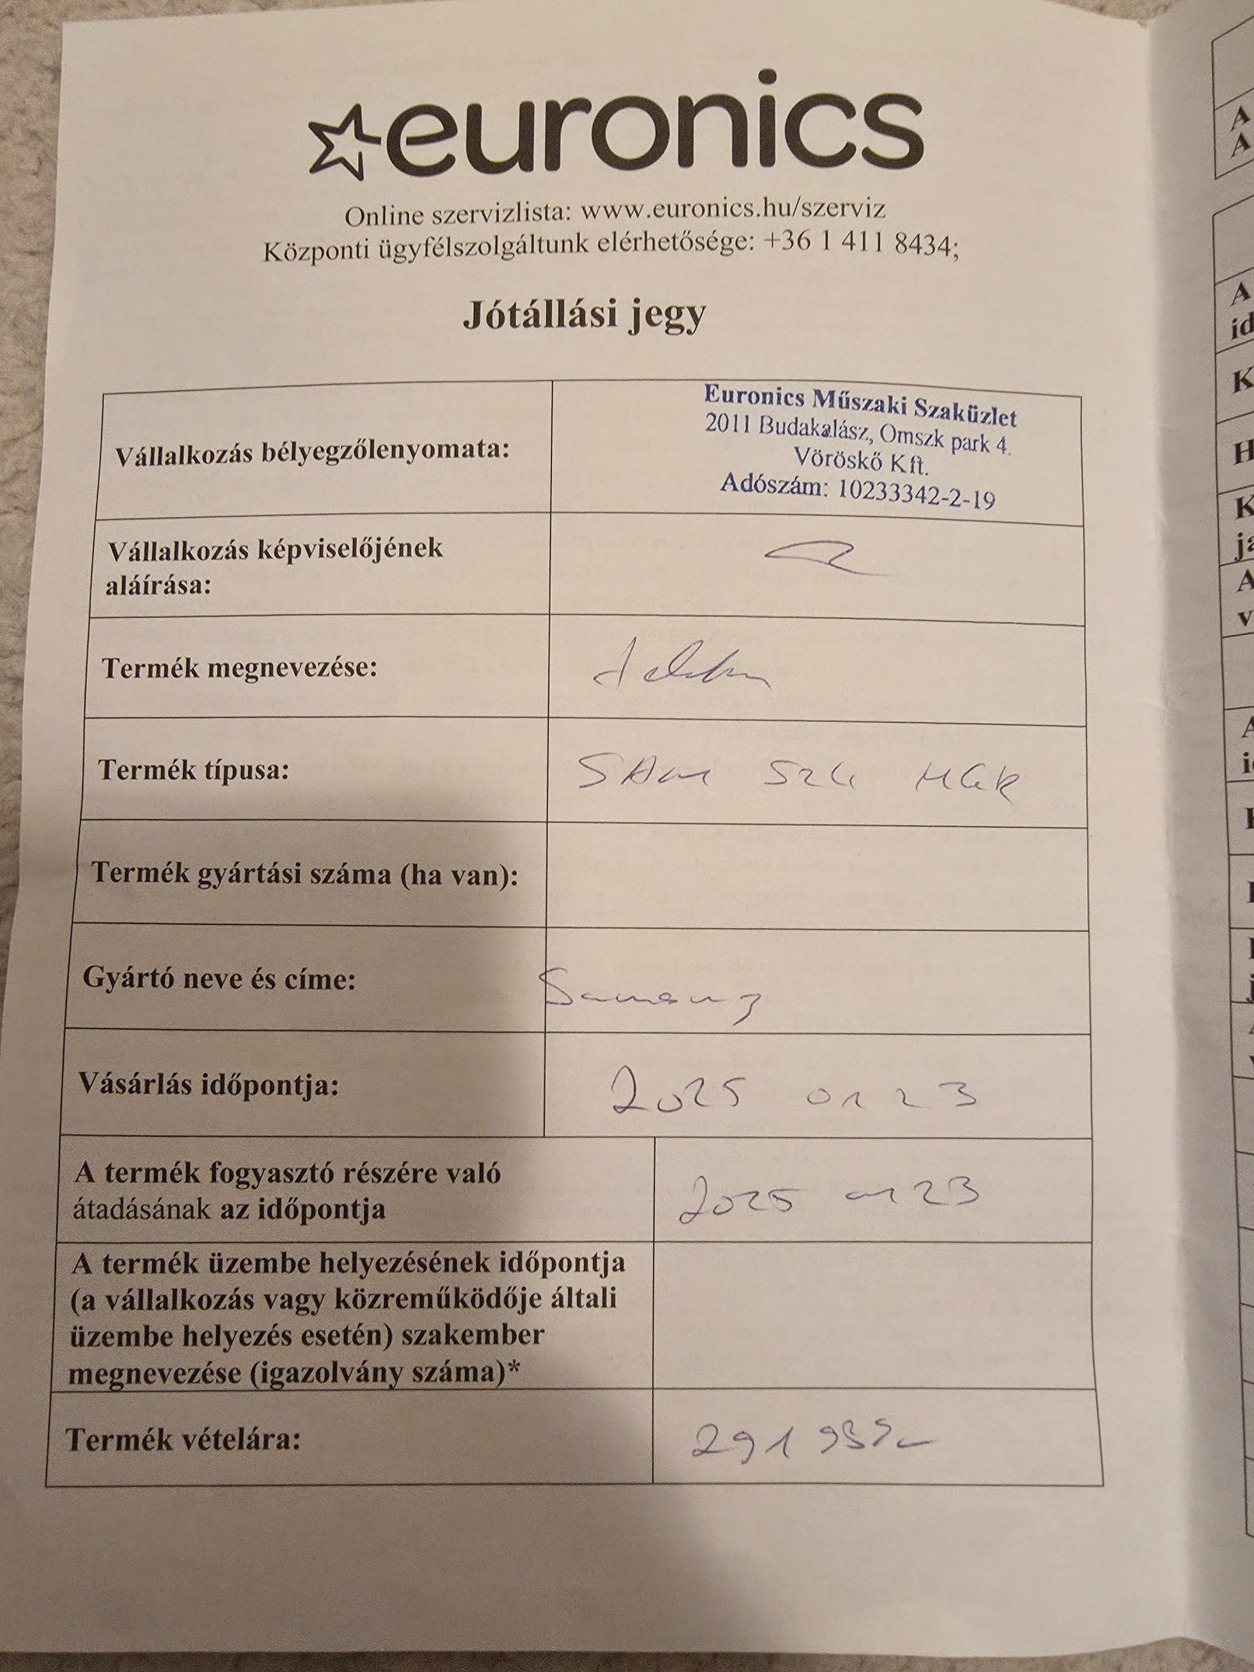 euronics
Online szervizlista: www.euronics.hu/szerviz
Központi ügyfélszolgáltunk elérhetősége: +36 1 411 8434;
Jótállási jegy
Vállalkozás bélyegzőlenyomata:
Euronics Műszaki Szaküzlet
2011 Budakalász, Omszk park 4.
Vöröskő Kft.
Adószám: 10233342-2-19
Vállalkozás képviselőjének
aláírása:
Termék megnevezése:
Termék típusa:
SAM S24
Termék gyártási száma (ha van):
Gyártó neve és címe:
Samsung
Vásárlás időpontja:
2025 01 23
A termék fogyasztó részére való
átadásának az időpontja
2025 01 23
A termék üzembe helyezésének időpontja
(a vállalkozás vagy közreműködője általi
üzembe helyezés esetén) szakember
megnevezése (igazolvány száma)*
Termék vételára: